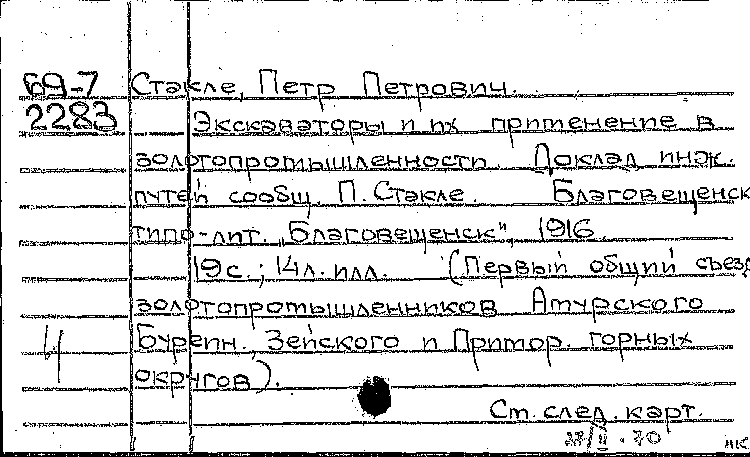 69-7 Стэкле, Петр Петрович.
2283 Экскаваторы и их применение в
золотопромышленности. Доклад инж.
путей сообщ. П. Стэкле. Благовещенск
типо-лит. „Благовещенск", 1916.
19с.; 14л. илл. (Первый общий съезд
золотопромышленников Амурского
Буреин. Зейского и Примор. горных
округов).
См. след. карт.
70
НК